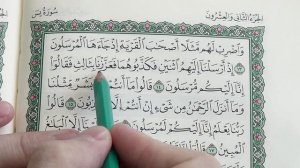 الجزء الثاني والعشرون
سورة يس
وَاضْرِبْ لَهُم مَّثَلًا أَصْحَٰبَ الْقَرْيَةِ إِذْ جَآءَهَا الْمُرْسَلُونَ
﴿١٣﴾ إِذْ أَرْسَلْنَآ إِلَيْهِمُ اثْنَيْنِ فَكَذَّبُوهُمَا فَعَزَّزْنَا بِثَالِثٍ فَقَالُوٓا
إِنَّآ إِلَيْكُم مُّرْسَلُونَ ﴿١٤﴾ قَالُوا مَآ أَنتُمْ إِلَّا بَشَرٌ مِّثْلُنَا
وَمَآ أَنزَلَ الرَّحْمَٰنُ مِن شَىْءٍ إِنْ أَنتُمْ إِلَّا
رَبُّنَا يَعْلَمُ إِنَّآ إِلَيْكُمْ لَمُرْسَلُونَ ﴿١٦﴾ وَمَا عَلَيْنَآ إِلَّا الْبَلَٰغُ
الْمُبِينُ ﴿١٧﴾